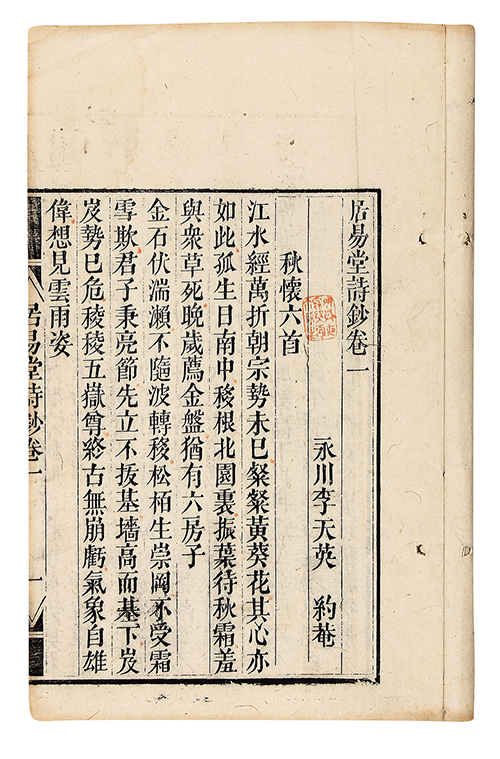 居易堂詩鈔卷一
永川李天英 約菴
秋懷六首
江水經萬折朝宗勢未已粲粲黃葵花其心亦
如此孤生日南中移根北園裏振葉待秋霜羞
與衆草死晚歲薦金盤猶有六房子
金石伏湍瀨不隨波轉移松栢生崇岡不受霜
雪欺君子秉亮節先立不拔基墻高而基下岌
岌勢已危稜稜五嶽尊終古無崩虧氣象自雄
偉想見雲雨姿
居易堂詩鈔卷一
一